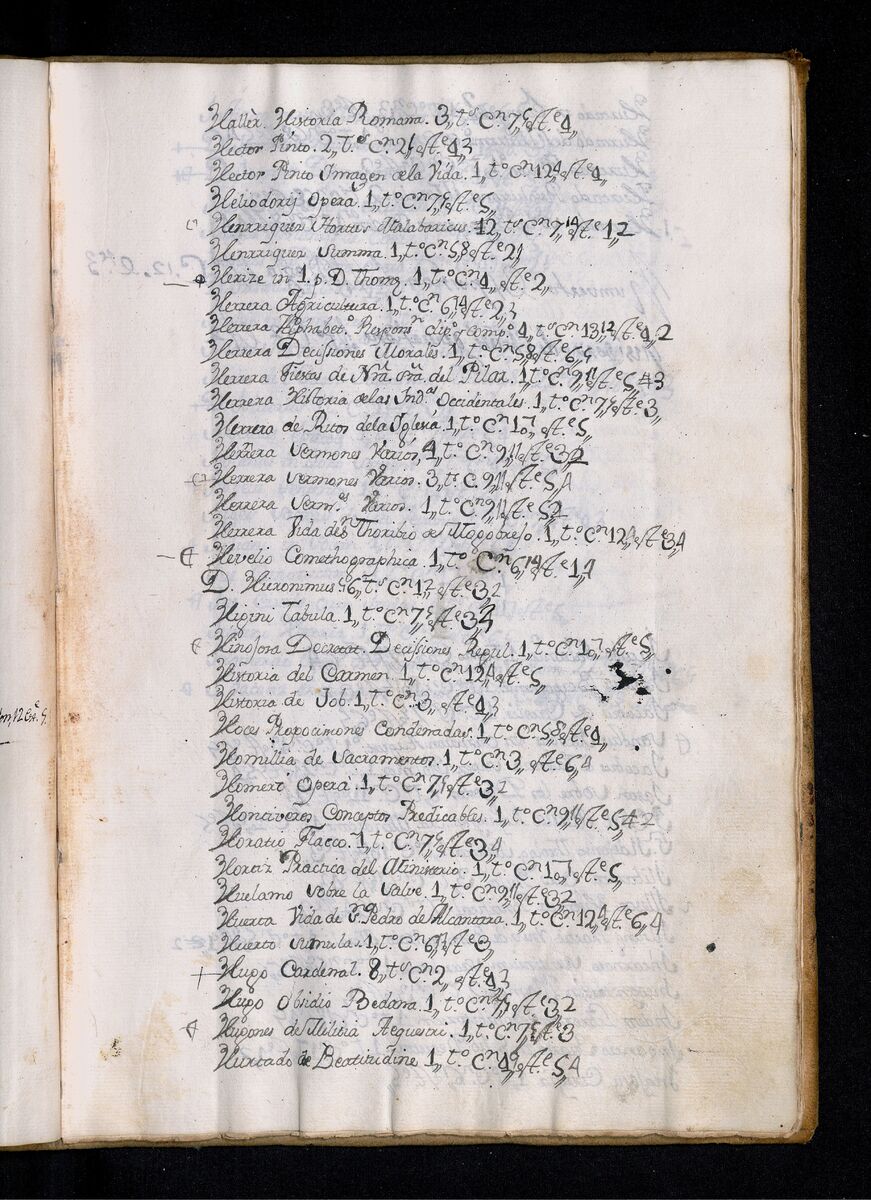 Hallèr. Historia Romana. 3,, t.ˢ C.ⁿ 7,, est.ᵉ 4,,
Hector Pinto. 2,, t.ᵒˢ C.ⁿ 2 est.ᵉ 4,, 3
Hector Pinto Imagen dela Vida. 1,, t.º C.ⁿ 12 est.ᵉ 4,,
Heliodorij Opera. 1,, t.º C.ⁿ 7,, est.ᵉ 5,,
Henrriquez Hortus Malabaricus. 12,, t.ᵒˢ C.ⁿ 7,, est.ᵉ 1,, 2
Henrriquez Summa. 1,, t.º C.ⁿ 5,, est.ᵉ 2
Herize in 1. p. D. Thom. 1,, t.º C.ⁿ 4,, est.ᵉ 2,,
Herrera Agricultura. 1,, t.º C.ⁿ 6,, est.ᵉ 2,, 3
Herrera Alphabet.º Respons.ⁿ 4,, t.ˢ C.ⁿ 13,, est.ᵉ 4,, 2
Herrera Decissiones Morales. 1,, t.º C.ⁿ 5,, est.ᵉ 6,,
Herrera Fiestas de Nrã. Srã. del Pilar. 1,, t.º C.ⁿ 9,, est.ᵉ 5,, 3
Herrera Historia delas Ind.ˢ Occidentales. 1,, t.º C.ⁿ 7,, est.ᵉ 3,,
Herrera de Ritos dela Iglesia. 1,, t.º C.ⁿ 10,, est.ᵉ 5,,
Herrera Sermones Varios, 4,, t.º C.ⁿ 9,, est.ᵉ 3,, 2
Herrera Sermones Varios. 3,, t.ˢ C.ⁿ 9,, est.ᵉ 5,, 4
Herrera Serm.ᵉˢ Varios. 1,, t.º C.ⁿ 9,, est.ᵉ 5,, 2
Herrera Vida de S.ⁿ Thoribio de Mogobrejo. 1,, t.º C.ⁿ 12,, est.ᵉ 3,, 4
Hevelio Comethographica. 1,, t.º C.ⁿ 6,, est.ᵉ 1,, 4
D. Hieronimus. 6,, t.ˢ C.ⁿ 1,, est.ᵉ 3,, 2
Higini Tabula. 1,, t.º C.ⁿ 7,, est.ᵉ 3,,
Hinojora Decretat. Decissiones Regul. 1,, t.º C.ⁿ 10,, est.ᵉ 5,,
Historia del Carmen. 1,, t.º C.ⁿ 12 est.ᵉ 5,,
Historia de Job. 1,, t.º C.ⁿ 3,, est.ᵉ 4,, 3
Hoces Propociones Condenadas. 1,, t.º C.ⁿ 5,, est.ᵉ 4,,
Homillia de Sacramentos. 1,, t.º C.ⁿ 3,, est.ᵉ 6,, 4
Homeri Opera. 1,, t.º C.ⁿ 7,, est.ᵉ 3,, 2
Hontiveros Conceptos Predicables. 1,, t.º C.ⁿ 9,, est.ᵉ 5,, 2
Horatio Flacco. 1,, t.º C.ⁿ 7,, est.ᵉ 3,, 4
Hortiz Practica del Ministerio. 1,, t.º C.ⁿ 10,, est.ᵉ 5,,
Huelamo Sobre la Salve. 1,, t.º C.ⁿ 9,, est.ᵉ 3,, 2
Huerta Vida de S.ⁿ Pedro de Alcantara. 1,, t.º C.ⁿ 12,, est.ᵉ 6,, 4
Huerto Sumula. 1,, t.º C.ⁿ 6,, est.ᵉ 3,,
Hugo Cardenal. 8,, t.ˢ C.ⁿ 2,, est.ᵉ 4,, 3
Hugo Obsidio Bredana. 1,, t.º C.ⁿ 7,, est.ᵉ 3,, 2
Hugones de Militia Aequestri. 1,, t.º C.ⁿ 7,, est.ᵉ 3
Hurtado de Beatitudine 1,, t.º C.ⁿ 4,, est.ᵉ 5,, 4